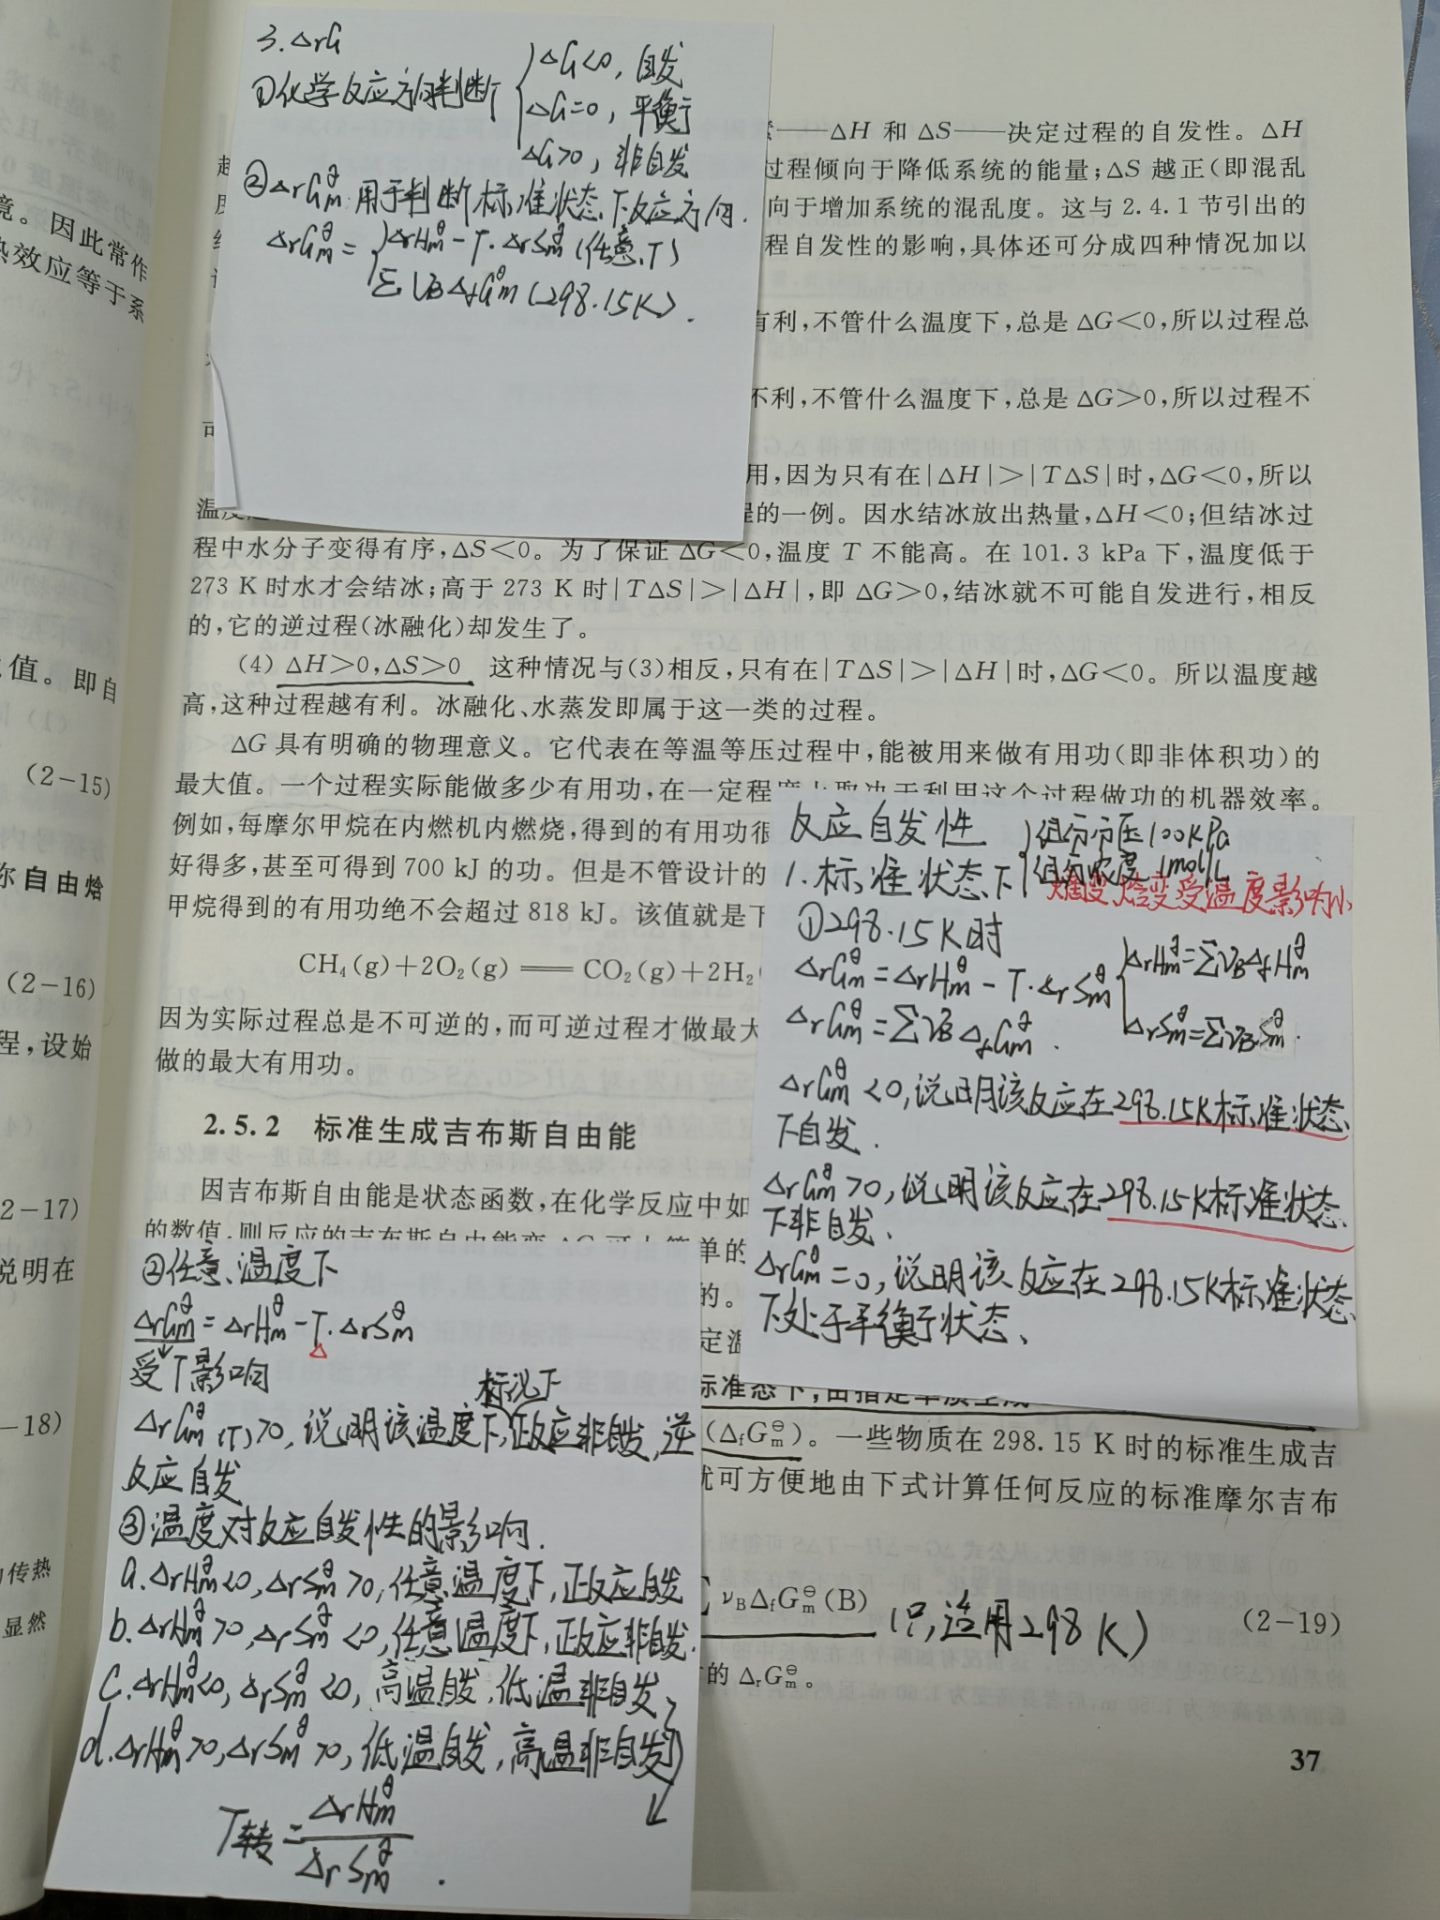 3. ΔrG
①化学反应方向判断
ΔG<0, 自发
ΔG=0, 平衡
ΔG>0, 非自发
②ΔrGmθ 用于判断标准状态下反应方向.
ΔrGmθ = ΔrHmθ - T·ΔrSmθ (任意T)
Σ νB ΔfGmθ (298.15K).
——ΔH 和 ΔS——决定过程的自发性。ΔH
过程倾向于降低系统的能量;ΔS 越正(即混乱
向于增加系统的混乱度。这与 2.4.1 节引出的
程自发性的影响,具体还可分成四种情况加以
有利,不管什么温度下,总是 ΔG<0,所以过程总
不利,不管什么温度下,总是 ΔG>0,所以过程不
用,因为只有在|ΔH|>|TΔS|时,ΔG<0,所以
程的一例。因水结冰放出热量,ΔH<0;但结冰过
程中水分子变得有序,ΔS<0。为了保证 ΔG<0,温度 T 不能高。在 101.3 kPa 下,温度低于
273 K 时水才会结冰;高于 273 K 时|TΔS|>|ΔH|,即 ΔG>0,结冰就不可能自发进行,相反
的,它的逆过程(冰融化)却发生了。
(4) ΔH>0,ΔS>0 这种情况与(3)相反,只有在|TΔS|>|ΔH|时,ΔG<0。所以温度越
高,这种过程越有利。冰融化、水蒸发即属于这一类的过程。
ΔG 具有明确的物理意义。它代表在等温等压过程中,能被用来做有用功(即非体积功)的
最大值。一个过程实际能做多少有用功,在一定程度上取决于利用这个过程做功的机器效率。
例如,每摩尔甲烷在内燃机内燃烧,得到的有用功很
好得多,甚至可得到 700 kJ 的功。但是不管设计的
甲烷得到的有用功绝不会超过 818 kJ。该值就是下
CH₄(g)+2O₂(g)══CO₂(g)+2H₂
因为实际过程总是不可逆的,而可逆过程才做最大
做的最大有用功。
2.5.2 标准生成吉布斯自由能
因吉布斯自由能是状态函数,在化学反应中如
的数值,则反应的吉布斯自由能变 ΔG 可由简单的
的。
标准态下,由指定单质生成
(ΔfGm⊖)。一些物质在 298.15 K 时的标准生成吉
就可方便地由下式计算任何反应的标准摩尔吉布
νBΔfGm⊖(B) (只适用298K) (2-19)
的 ΔrGm⊖。
37
反应自发性
1. 标准状态下
组分分压100KPa
组分浓度 1mol/L
熵变、焓变受温度影响小
①298.15K时
ΔrGmθ = ΔrHmθ - T·ΔrSmθ
ΔrHmθ=ΣνBΔfHmθ
ΔrSmθ=ΣνBSmθ.
ΔrGmθ = ΣνB ΔfGmθ.
ΔrGmθ <0, 说明该反应在298.15K标准状态
下自发.
ΔrGmθ >0, 说明该反应在298.15K标准状态
下非自发.
ΔrGmθ =0, 说明该反应在298.15K标准状态
下处于平衡状态.
②任意温度下
ΔrGmθ = ΔrHmθ - T·ΔrSmθ
受T影响
标况下
ΔrGmθ(T)>0, 说明该温度下,正反应非自发,逆
反应自发
③温度对反应自发性的影响.
a. ΔrHmθ<0, ΔrSmθ>0, 任意温度下, 正反应自发
b. ΔrHmθ>0, ΔrSmθ<0, 任意温度下, 正反应非自发.
c. ΔrHmθ<0, ΔrSmθ<0, 高温自发, 低温非自发
d. ΔrHmθ>0, ΔrSmθ>0, 低温自发, 高温非自发
T转= ΔrHmθ / ΔrSmθ.
境。因此常作
热效应等于系
值。即自
(2-15)
尔自由焓
(2-16)
程,设始
2-17)
说明在
-18)
传热
显然